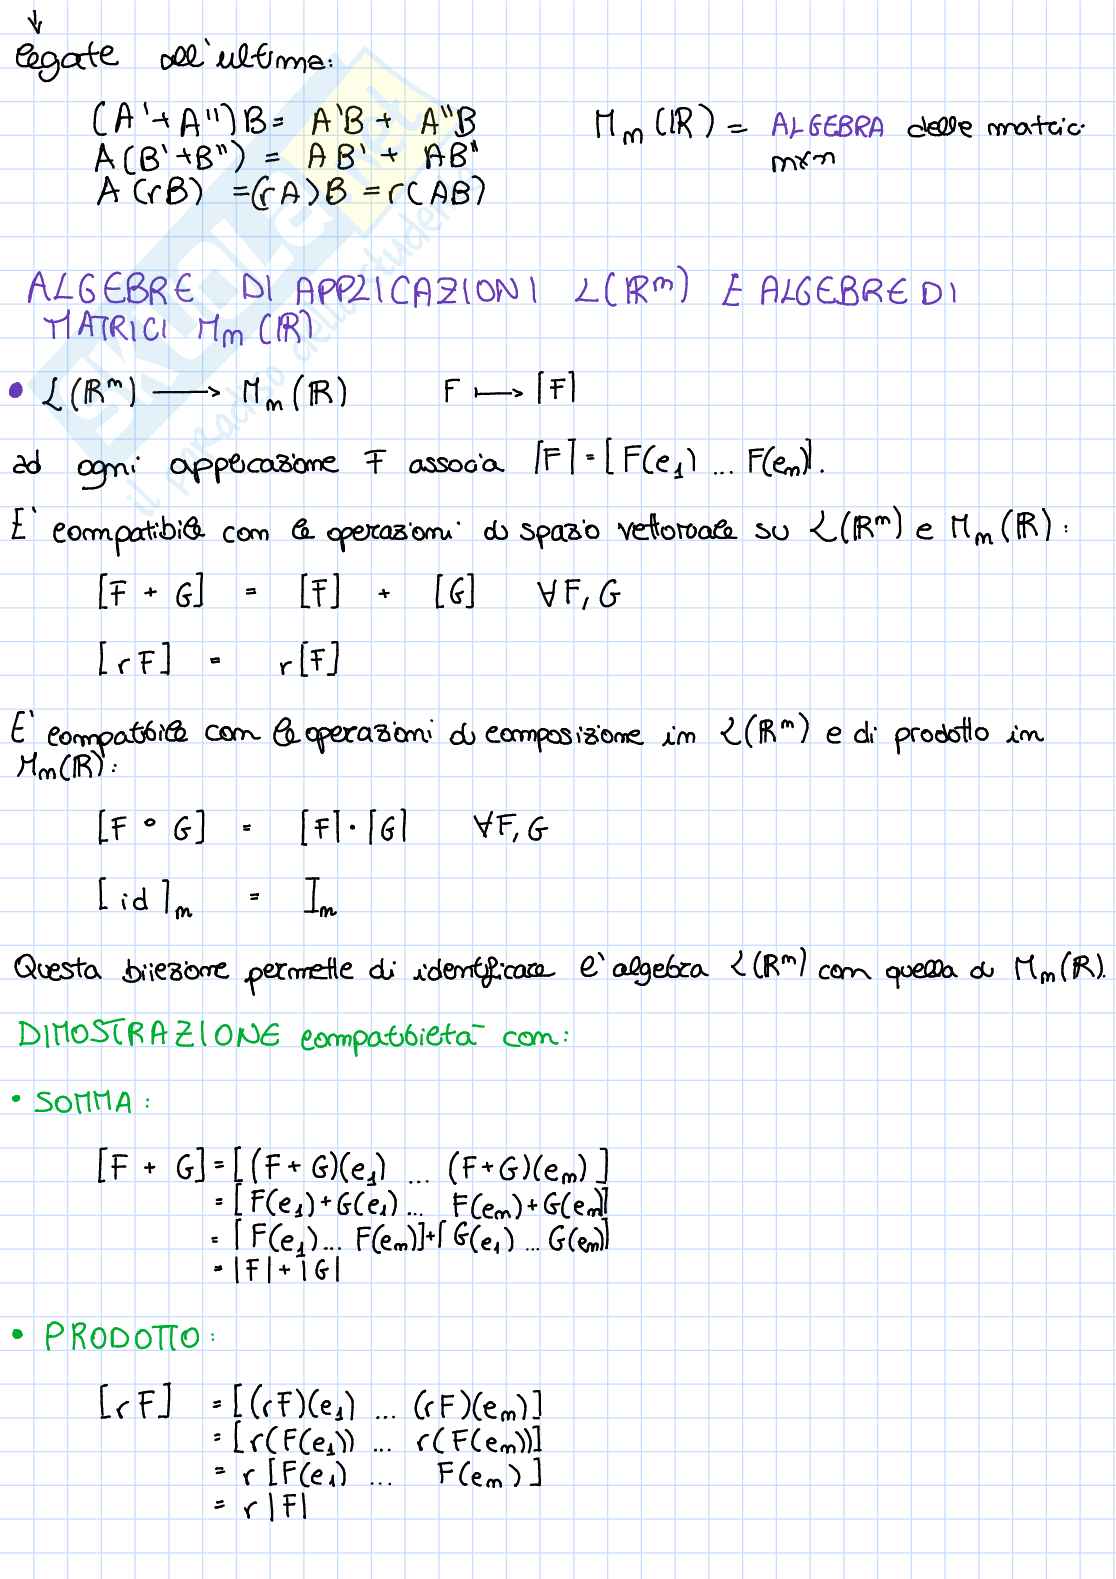 ↓
legate all'ultima:
(A'+A'')B = A'B + A''B
M_n(ℝ) = ALGEBRA delle matrici
A(B'+B'') = AB' + AB''
n×n
A(rB) = (rA)B = r(AB)
ALGEBRE DI APPLICAZIONI L(ℝⁿ) E ALGEBRE DI
MATRICI M_n(ℝ)
• L(ℝⁿ) ⟶ M_n(ℝ)   F ⟼ [F]
ad ogni applicazione F associa [F] = [F(e₁) ... F(e_n)].
E' compatibile con le operazioni di spazio vettoriale su L(ℝⁿ) e M_n(ℝ):
[F + G] = [F] + [G]   ∀F, G
[rF] = r[F]
E' compatibile con le operazioni di composizione in L(ℝⁿ) e di prodotto in
M_n(ℝ):
[F ∘ G] = [F]·[G]   ∀F, G
[id]_n = I_n
Questa biiezione permette di identificare l'algebra L(ℝⁿ) con quella di M_n(ℝ).
DIMOSTRAZIONE compatibilità con:
• SOMMA:
[F + G] = [(F+G)(e₁) ... (F+G)(e_n)]
= [F(e₁)+G(e₁) ... F(e_n)+G(e_n)]
= [F(e₁) ... F(e_n)]+[G(e₁) ... G(e_n)]
= [F] + [G]
• PRODOTTO:
[rF] = [(rF)(e₁) ... (rF)(e_n)]
= [r(F(e₁)) ... r(F(e_n))]
= r [F(e₁) ... F(e_n)]
= r[F]
SKUOLA.net